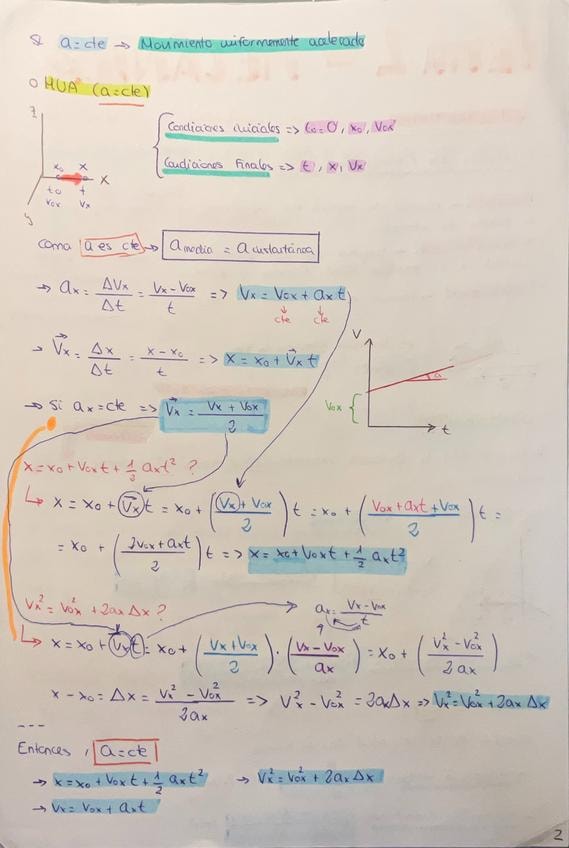 Si a=cte → Movimiento uniformemente acelerado
○ MUA (a=cte)
z
x₀ x x
t₀ t
V₀ₓ Vₓ
y
Condiciones iniciales => t₀=0, x₀, V₀ₓ
Condiciones Finales => t, x, Vₓ
Como a es cte → a media = a instantánea
→ aₓ = ΔVₓ/Δt = (Vₓ-V₀ₓ)/t => Vₓ = V₀ₓ + aₓt
cte cte
→ V⃗ₓ = Δx/Δt = (x-x₀)/t => x = x₀ + V⃗ₓt
V
a
V₀ₓ
t
→ Si aₓ=cte => V⃗ₓ = (Vₓ + V₀ₓ)/2
x=x₀+V₀ₓt+½aₓt² ?
↳ x = x₀ + V⃗ₓt = x₀ + ((Vₓ + V₀ₓ)/2)t = x₀ + ((V₀ₓ+aₓt+V₀ₓ)/2)t =
= x₀ + ((2V₀ₓ+aₓt)/2)t => x = x₀+V₀ₓt+½aₓt²
Vₓ² = V₀ₓ² + 2aₓΔx ?
aₓ = (Vₓ-V₀ₓ)/t
↳ x = x₀ + V⃗ₓt = x₀ + ((Vₓ+V₀ₓ)/2)·((Vₓ-V₀ₓ)/aₓ) = x₀ + ((Vₓ²-V₀ₓ²)/2aₓ)
x-x₀ = Δx = (Vₓ²-V₀ₓ²)/2aₓ => Vₓ²-V₀ₓ² = 2aₓΔx => Vₓ²=V₀ₓ²+2aₓΔx
---
Entonces, a=cte
→ x=x₀+V₀ₓt+½aₓt² → Vₓ²=V₀ₓ²+2aₓΔx
→ Vₓ = V₀ₓ+aₓt
2